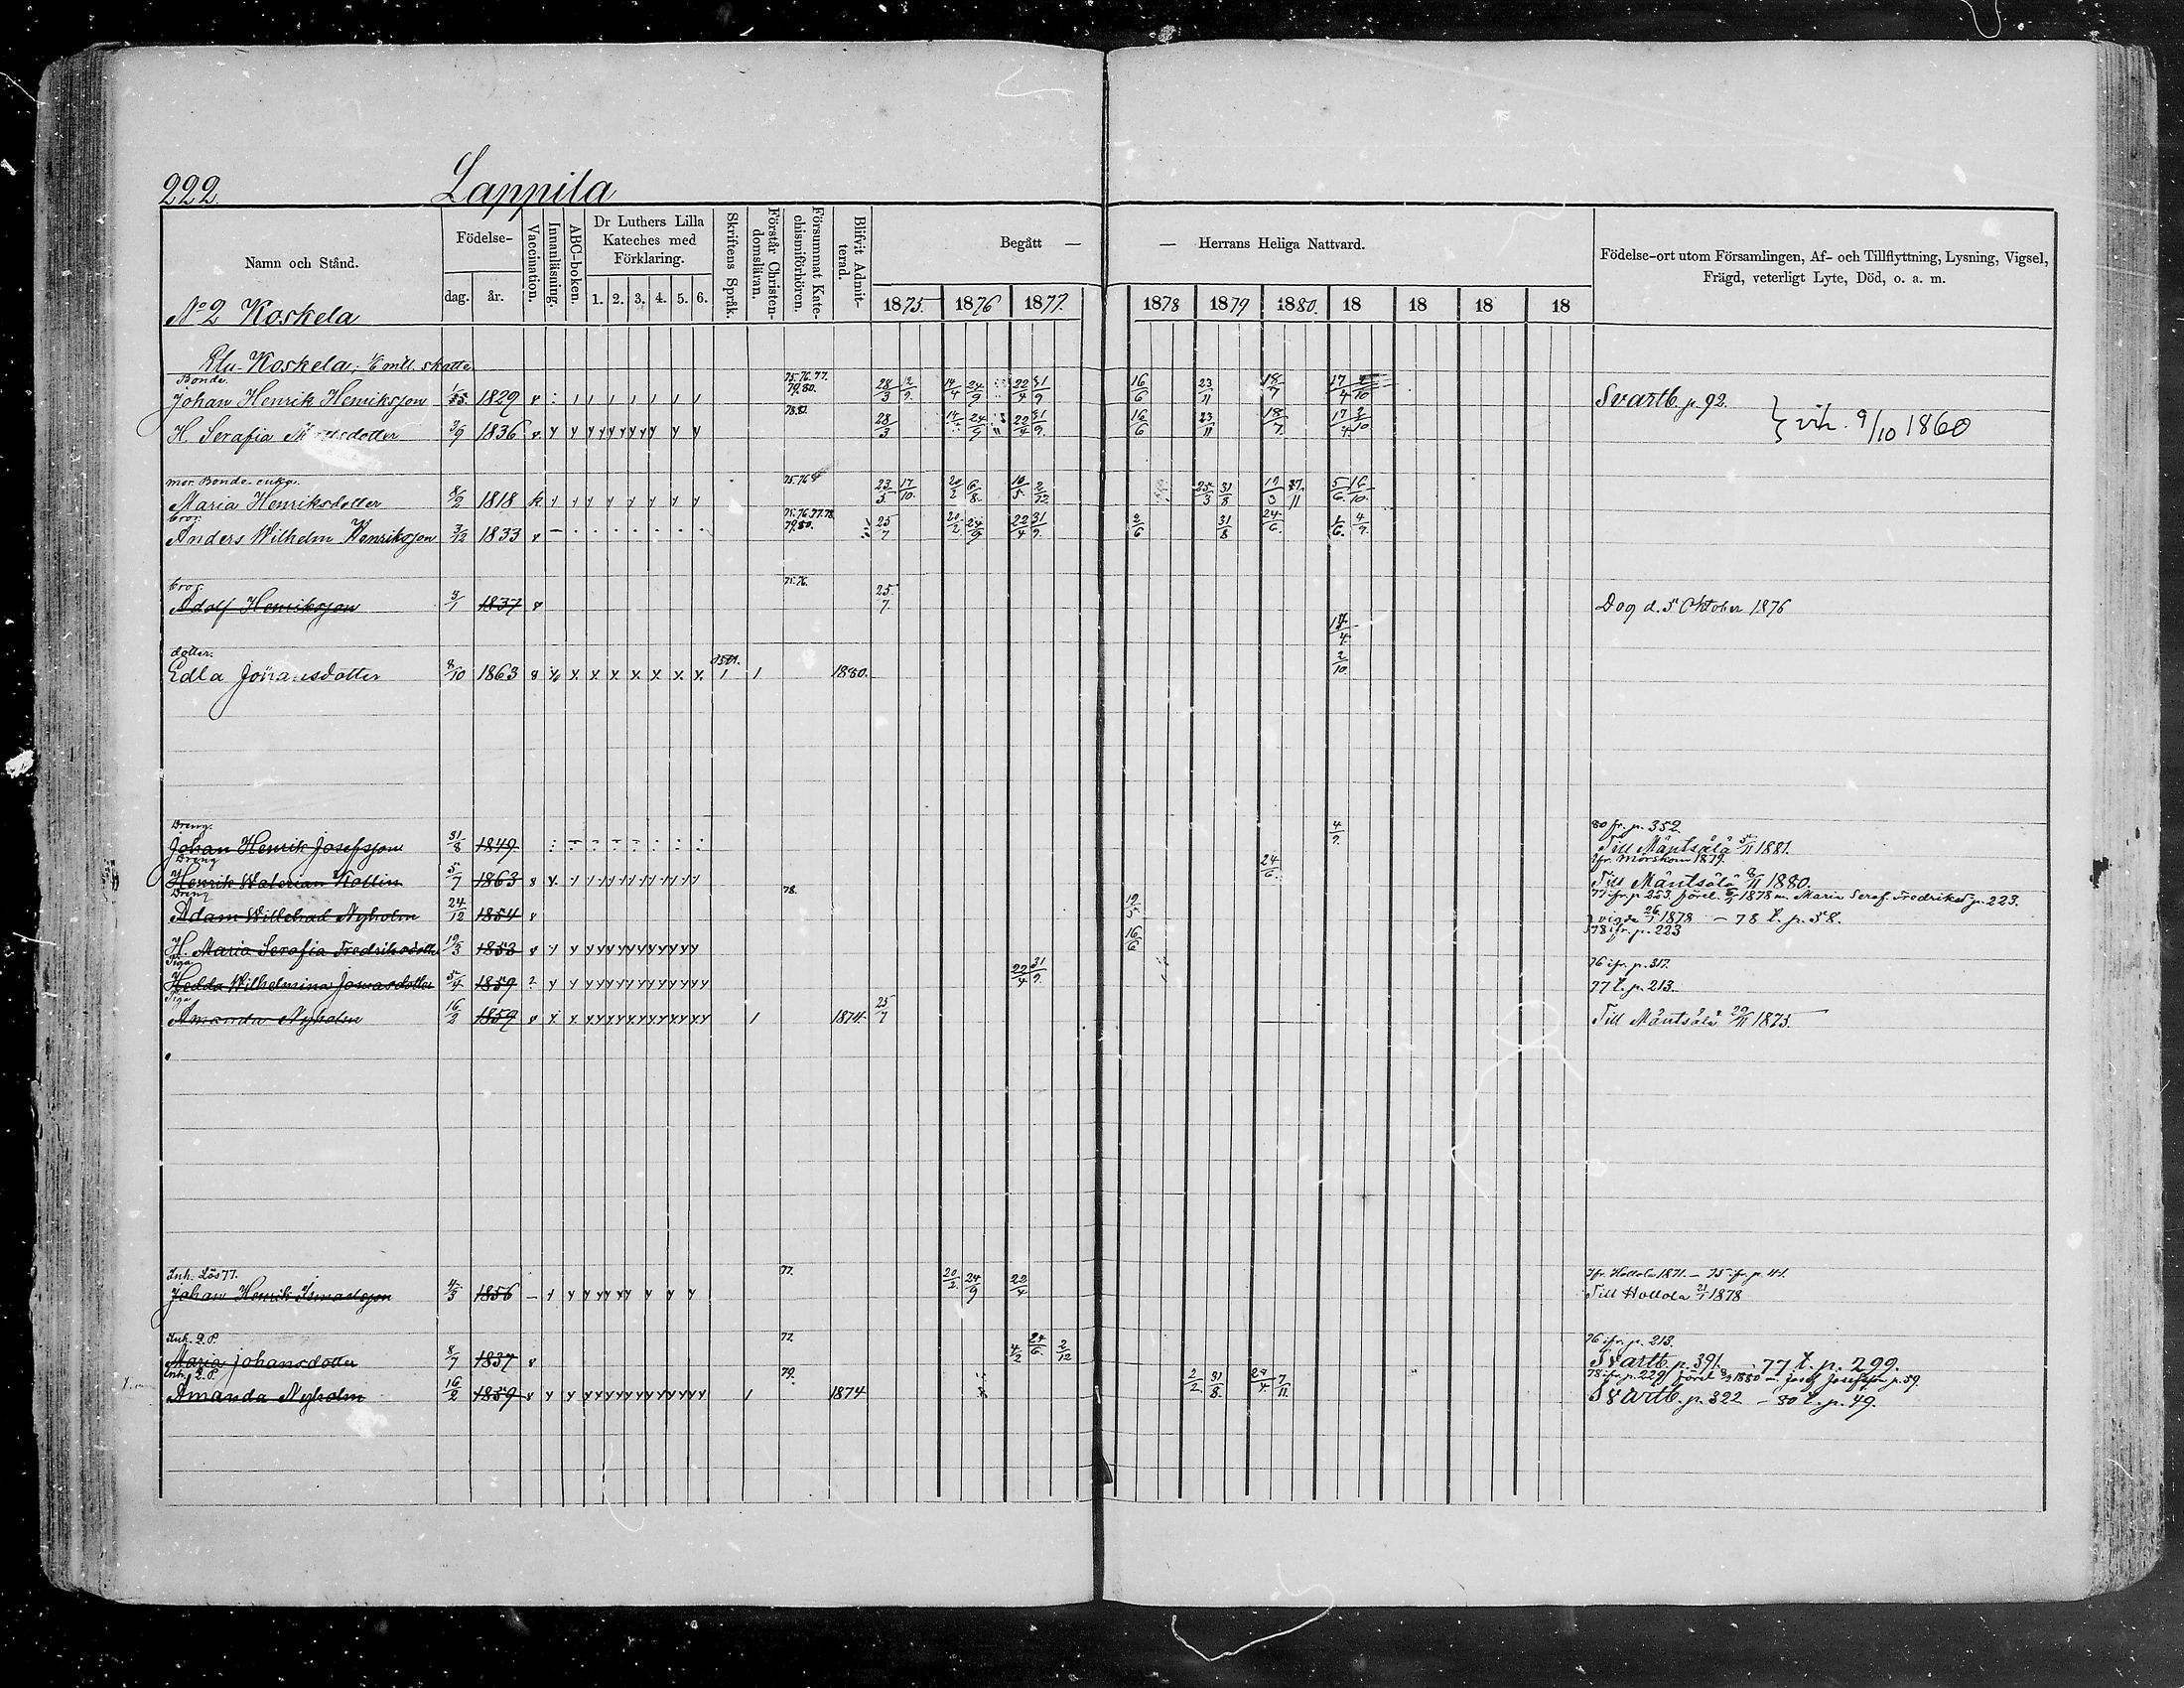 222. Lappila
Namn och Stånd.
Födelse-
dag. år.
Vaccination.
Innanläsning.
ABC-boken.
Dr Luthers Lilla Kateches med Förklaring.
1. 2. 3. 4. 5. 6.
Skriftens Språk.
Förstår Christendomsläran.
Försummat Katechismiförhören.
Blifvit Admitterad.
Begått — — Herrans Heliga Nattvard.
1875. 1876 1877. 1878 1879 1880. 18 18 18 18
Födelse-ort utom Församlingen, Af- och Tillflyttning, Lysning, Vigsel,
Frägd, veterligt Lyte, Död, o. a. m.
No 2 Koskela
Koskela,
Bonde. 75. 76. 77.
Johan Henrik Henriksson 1829 79. 80. 28/3 14/4 24/9 22/4 16/6 23/11 18/7 17/4 Svartb. p. 92.
H. Serafia 1836 28/3 14/4 24/9 22/4 16/6 23/11 18/7 17/4 2/10 } vih. 9/10 1860
mor. Bonde-enka.
Maria Henriksdotter 8/2 1818 23/5 17/10. 20/2 6/8. 10/5 2/12 25/3 31/8 5/6 16/10.
bror. 75. 76. 77. 78.
Anders Wilhelm Henriksson 3/12 1833 79. 80. 25/7 20/2 24/9 22/4 31/9. 2/6 31/8 24/6. 1/6. 4/9.
bror. 75. 76.
Adolf Henriksson 3/1 1837 25/7. Dog d. 5 Oktober 1876
dotter. 2/10.
Edla Johansdotter 8/10 1863 1880.
Dreng. 80 fr. p. 352.
Johan Henrik Josefsson 31/8 1849 4/9. Till Mäntsälä 5/11 1881.
Dreng ifr. Mörskom 1879.
Henrik Walerian Kollin 5/7 1863 24/6. Till Mäntsälä 8/11 1880.
Dreng 78. 77 ifr. p. 253. 1878 m. Maria Seraf. p. 223.
Adam Willehad Nyholm 24/12 1854 19/5 vigde 26/1 1878 — 78 t. p. 58.
H. Maria Serafia Fredriksdotter 19/3 1853 16/6 78 ifr. p. 223
Piga 76 ifr. p. 317.
Hedda Wilhelmina Jonasdotter 5/4 1859 22/4 31/9. 77 t. p. 213.
Piga
Amanda Nyholm 16/2 1859 1874. 25/7 Till Mäntsälä 1875.
Inh. Lös 77. 77. ifr. Hollola 1871. — 75 ifr. p. 41.
Johan Henrik Ismaelsson 4/3 1856 20/2. 24/9 22/4 Till Hollola 1878
Inh. 77. 76 ifr. p. 213.
Maria Johansdotter 8/7 1837 4/2 24/6. 2/12 Svartb. p. 391. 77 t. p. 299.
Inh. 79. 78 ifr. p. 229. 1880 m. Josef Josefsson p. 59.
Amanda Nyholm 16/2 1859 1874 2/2. 31/8. 7/11. Svartb. p. 322 — 80 t. p. 49.